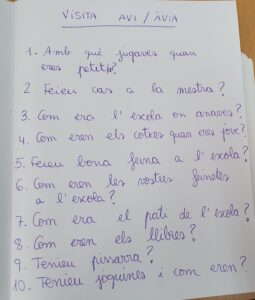 VISITA AVI / ÀVIA
1. Amb què jugaves quan
eres petit/a?
2. Feieu cas a la mestra?
3. Com era l'escola on anaves?
4. Com eren els cotxes quan eres jove?
5. Feieu bona feina a l'escola?
6. Com eren les vostres faneles
a l'escola?
7. Com era el pati de l'escola?
8. Com eren els llibres?
9. Tenieu pissarra?
10. Tenieu joguines i com eren?